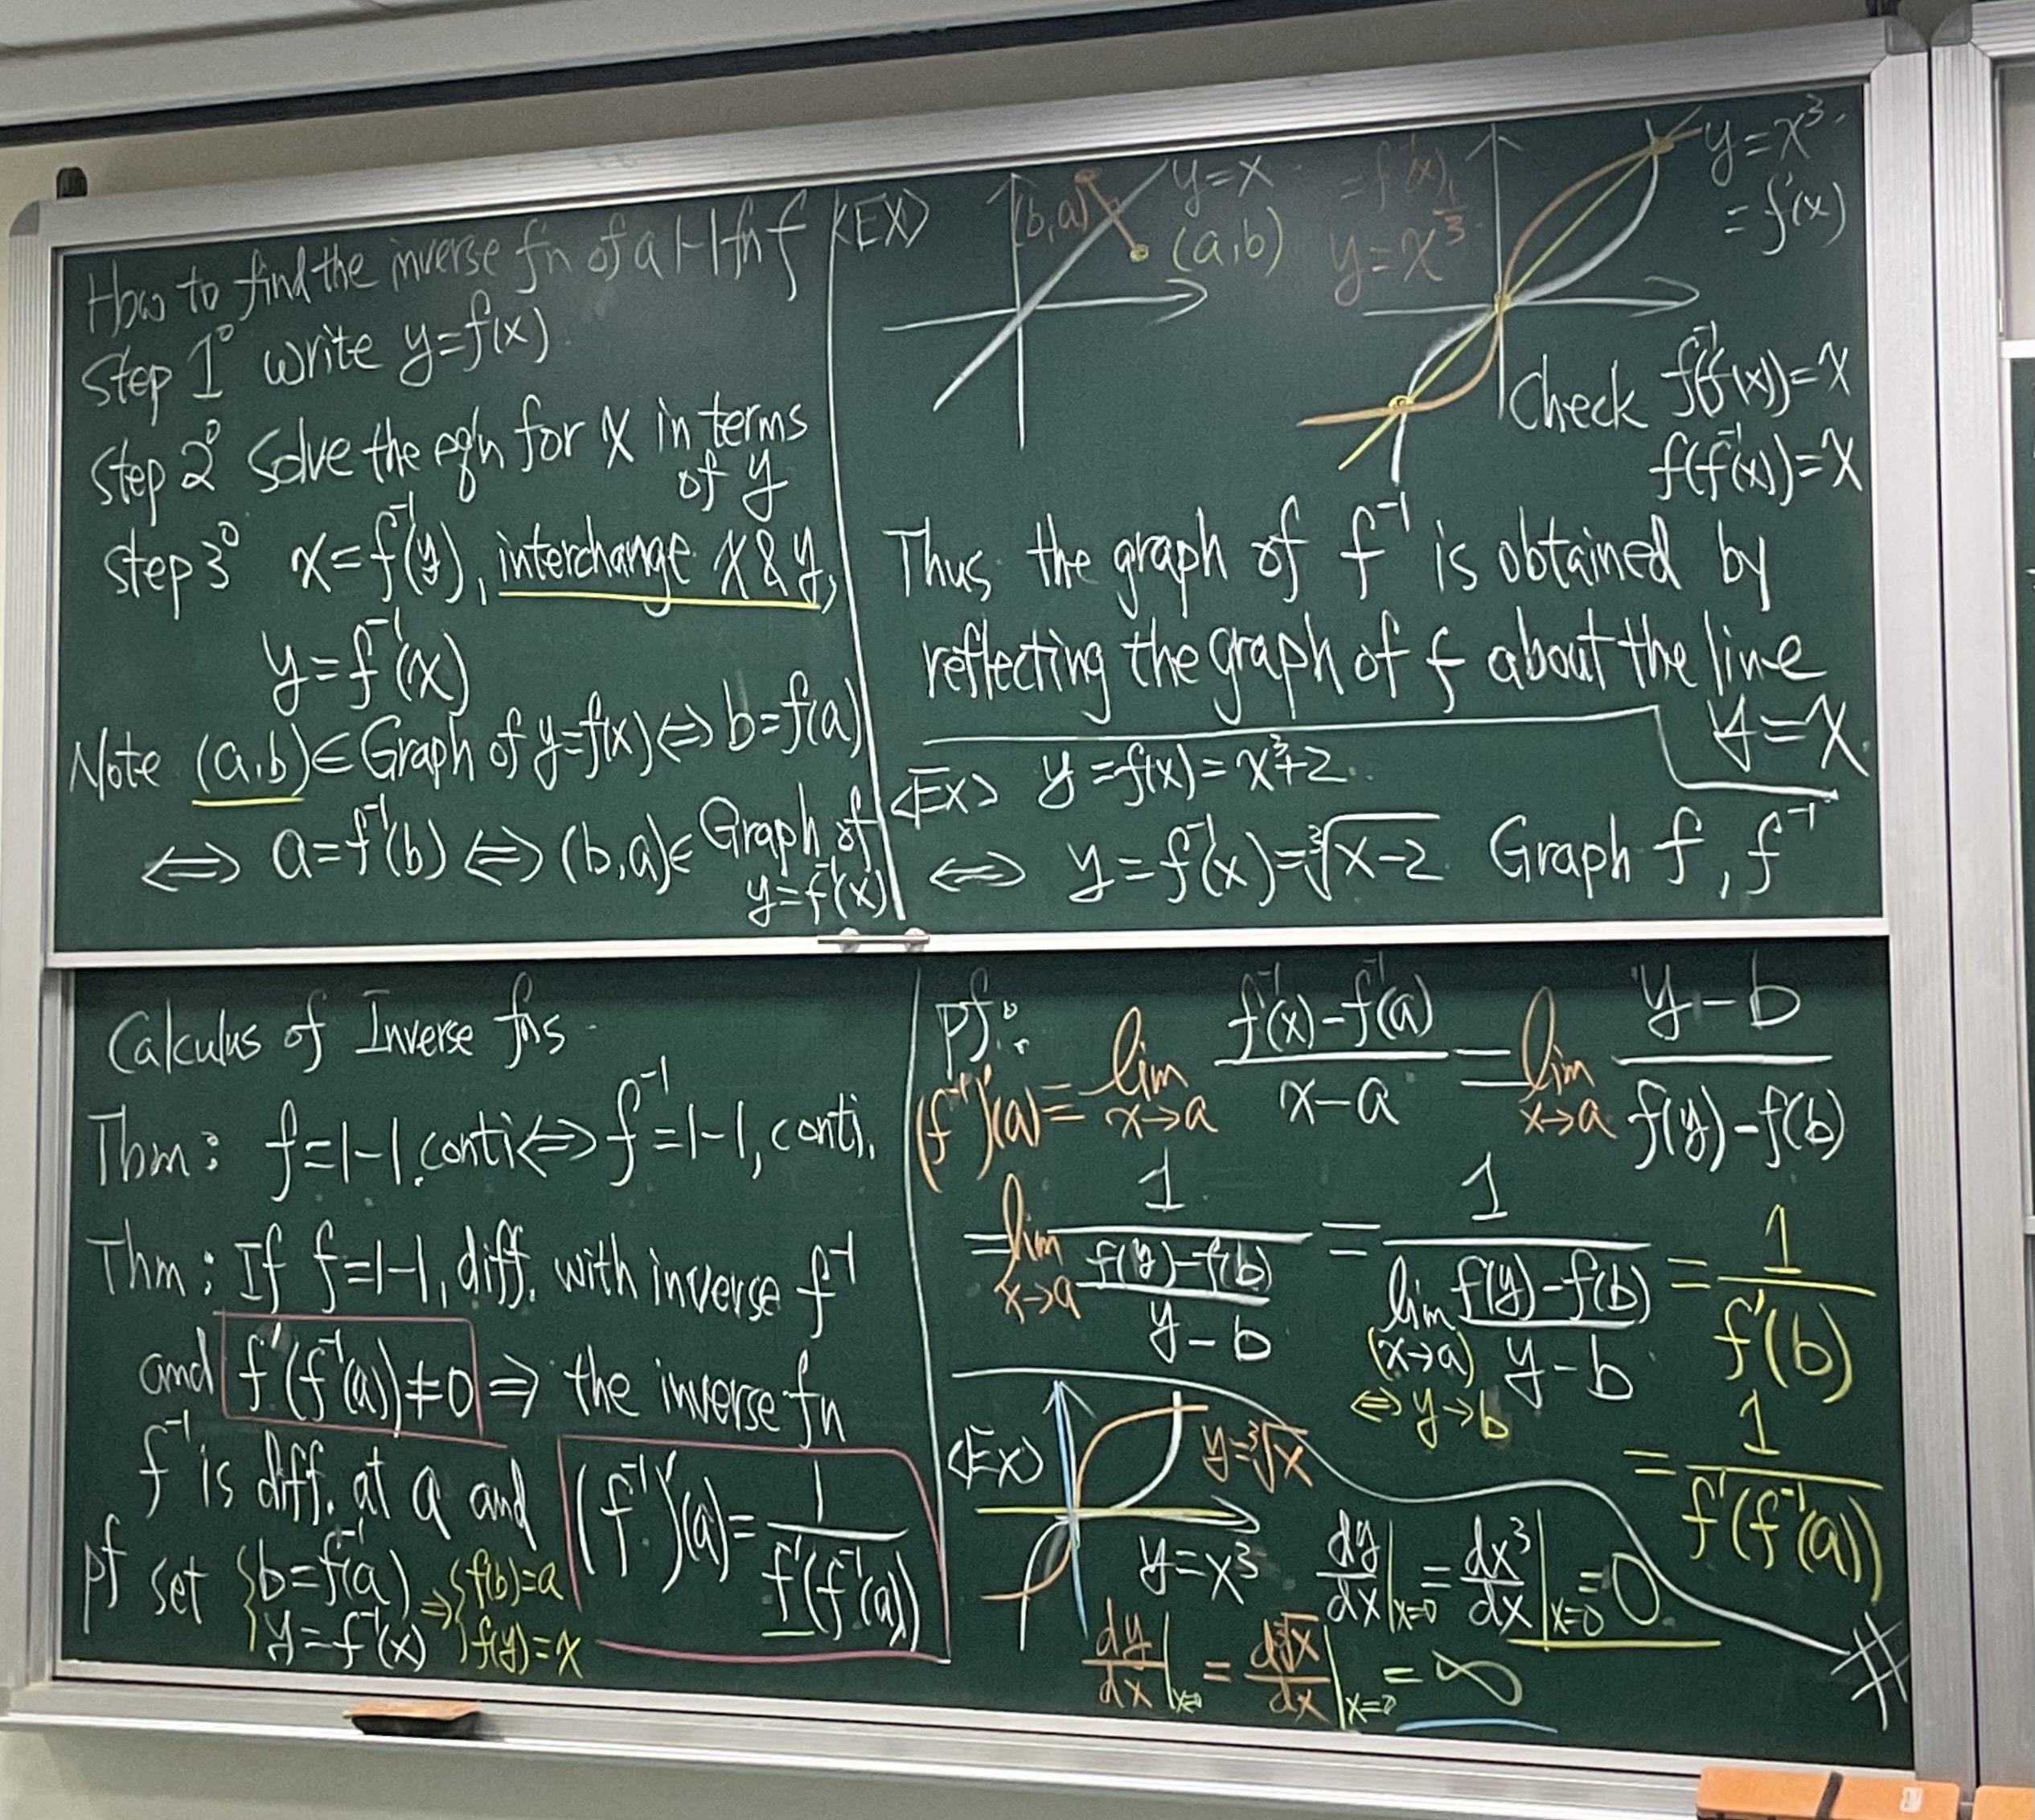 How to find the inverse fn of a 1-1 fn f
Step 1° write y=f(x).
Step 2° Solve the eqn for x in terms
of y
Step 3° x=f⁻¹(y), interchange x & y,
y=f⁻¹(x)
Note (a,b)∈Graph of y=f(x)⇔b=f(a)
⇔ a=f⁻¹(b) ⇔ (b,a)∈ Graph of
y=f⁻¹(x)
<EX>
(b,a)
y=x
(a,b)
=f⁻¹(x)
y=x^{1/3}
y=x³.
=f(x)
Check f⁻¹(f(x))=x
f(f⁻¹(x))=x
Thus the graph of f⁻¹ is obtained by
reflecting the graph of f about the line
y=x.
<Ex> y=f(x)=x³+2.
⇔ y=f⁻¹(x)=∛(x-2) Graph f, f⁻¹
Calculus of Inverse fns.
Thm: f=1-1, conti⇔f⁻¹=1-1, conti.
Thm: If f=1-1, diff. with inverse f⁻¹
and f'(f⁻¹(a))≠0 ⇒ the inverse fn
f⁻¹ is diff. at a and (f⁻¹)'(a)=1/f'(f⁻¹(a))
pf set {b=f⁻¹(a) ⇒ {f(b)=a
{y=f⁻¹(x) {f(y)=x
pf:
(f⁻¹)'(a)= lim x→a (f⁻¹(x)-f⁻¹(a))/(x-a) = lim x→a (y-b)/(f(y)-f(b))
= lim x→a 1/((f(y)-f(b))/(y-b)) = 1/(lim (x→a) ⇔y→b (f(y)-f(b))/(y-b)) = 1/f'(b)
= 1/f'(f⁻¹(a))
<Ex>
y=∛x
y=x³ dy/dx|x=0 = dx³/dx|x=0 = 0
dy/dx|x=0 = d∛x/dx|x=0 = ∞
#